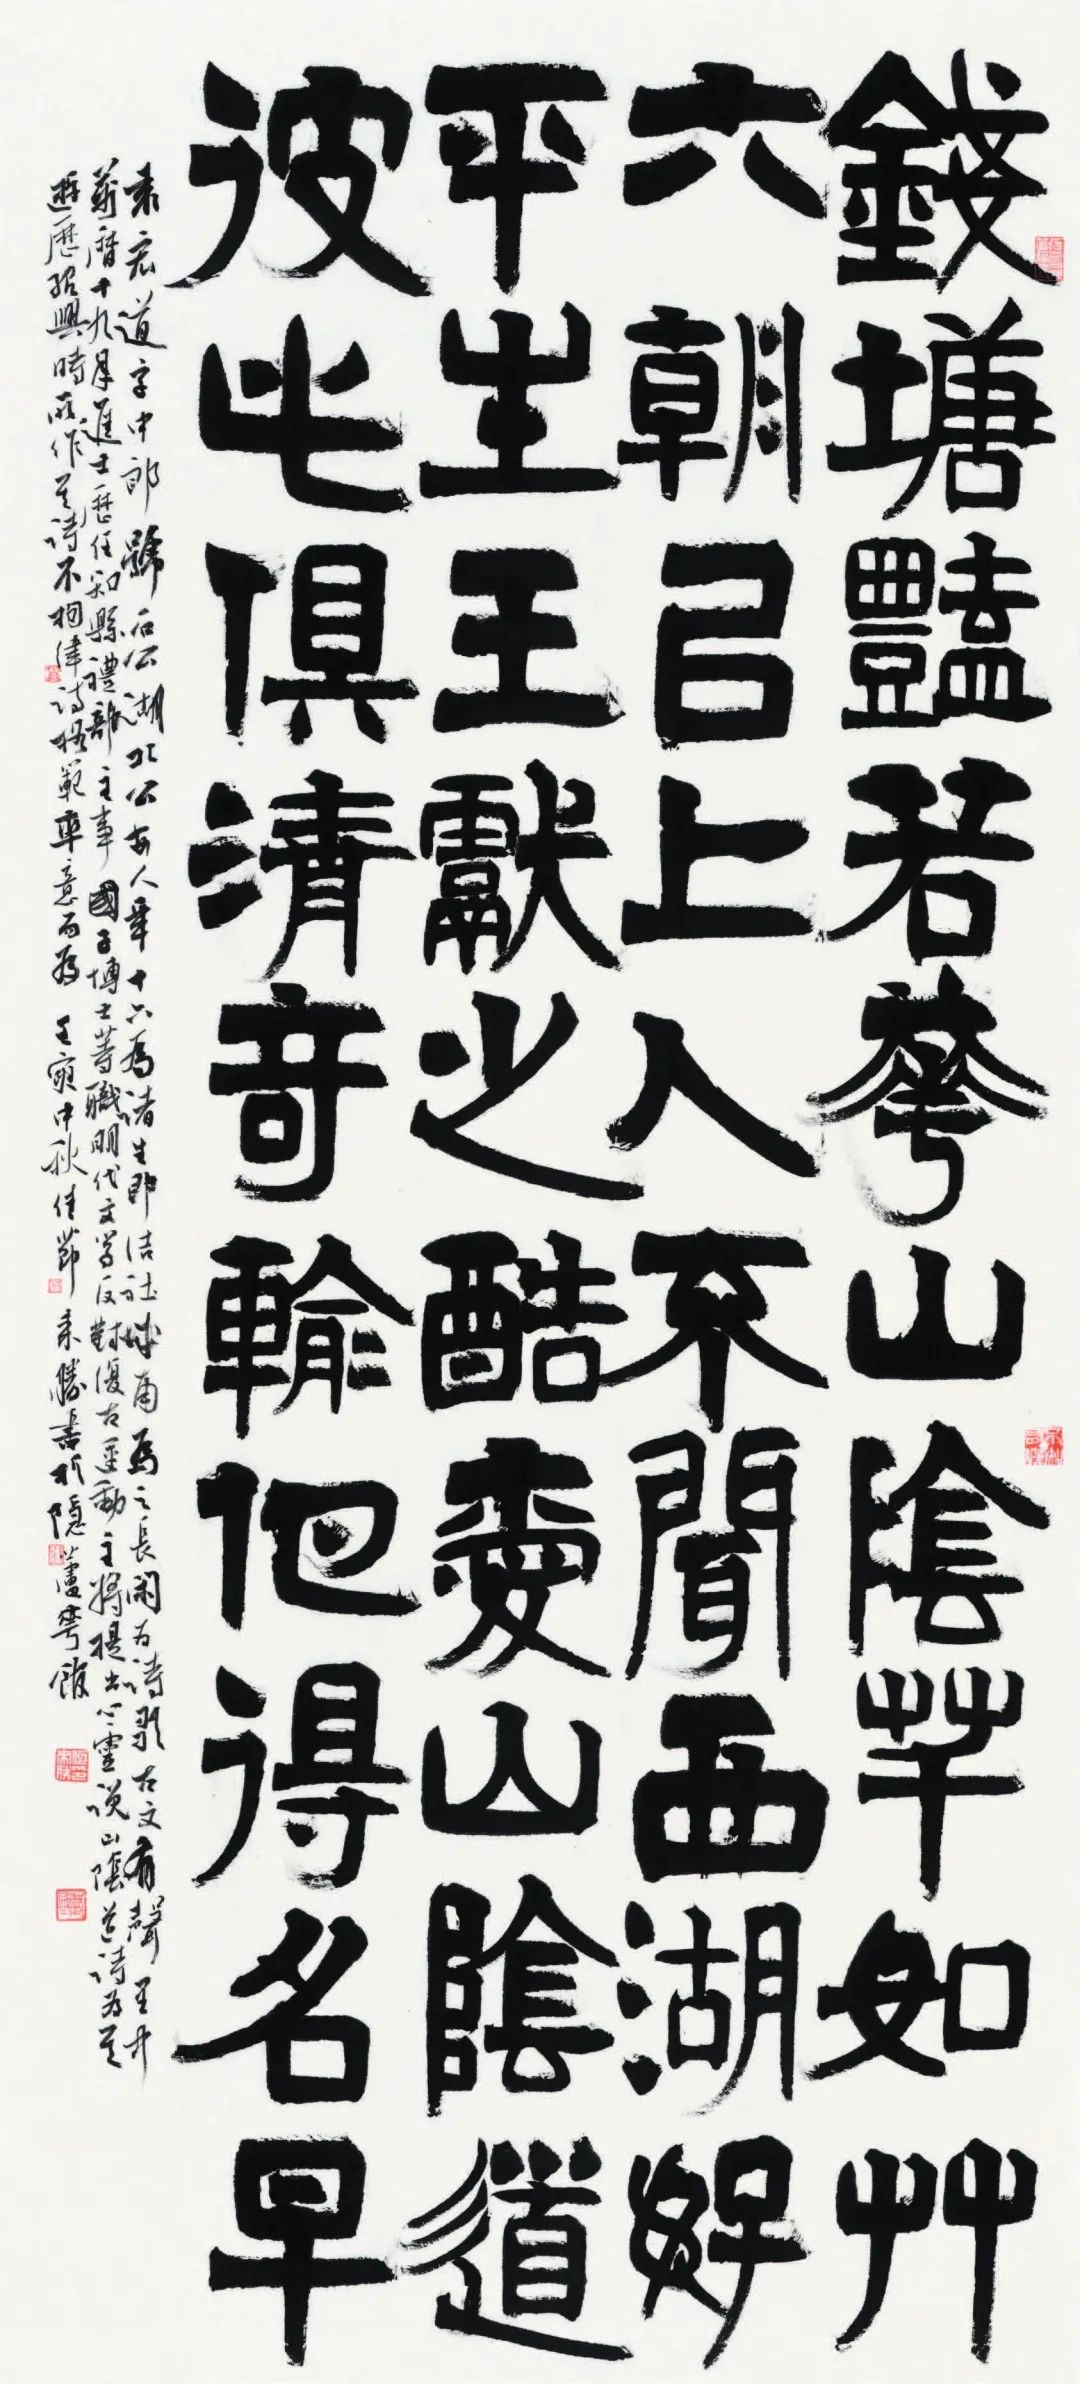 錢塘豔若華山陰芊如艸
六朝已上人不聞西湖好
平生王獻之酷愛山陰道
彼此俱清奇輸他得名早
袁宏道字中郎號石公湖北公安人年十六為諸生即結社城南為之長閑為詩歌古文有聲里中
萬曆十九年進士歷任知縣禮部主事國子博士等職明代文學反對復古運動主將提出心靈說山陰道詩為其
遊歷紹興時所作其詩不拘律詩格範率意而為 壬寅中秋佳節 來勝書於隱廬